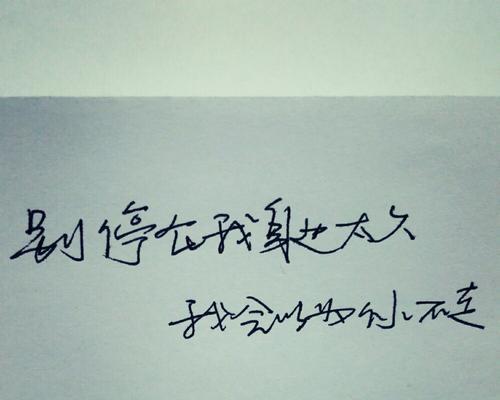 别停在我身边太久
我会以为你不走